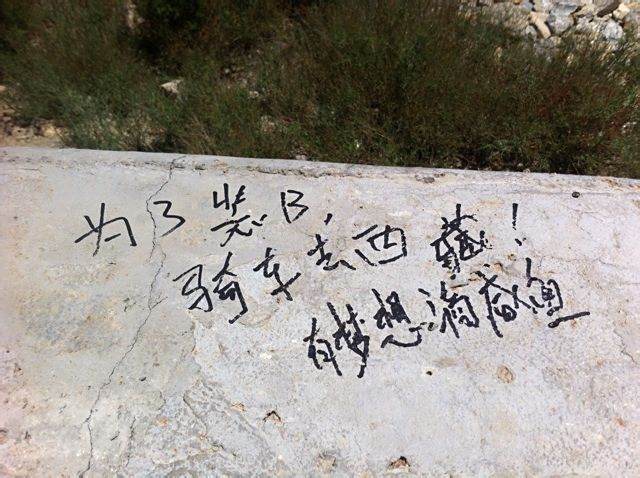 为了装B,
骑车去西藏!
有梦想滴咸鱼